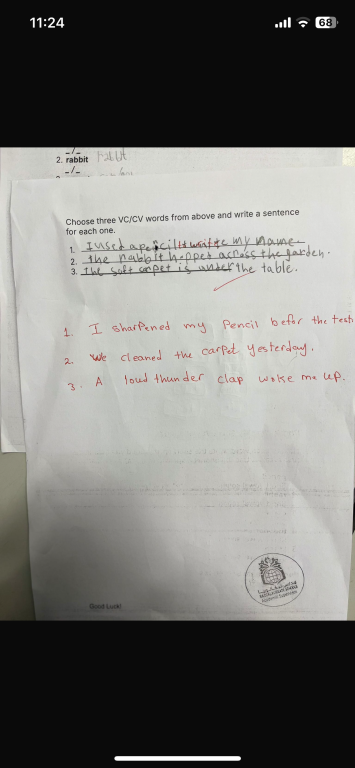 11:24
68
2. rabbit rabbit
Choose three VC/CV words from above and write a sentence
for each one.
1. I used a pencil to write my name.
2. the rabbit hopped across the garden.
3. the soft carpet is under the table.
1. I sharpened my Pencil befor the test
2. We cleaned the carpet yesterday.
3. A loud thunder clap woke me up.
Good Luck!